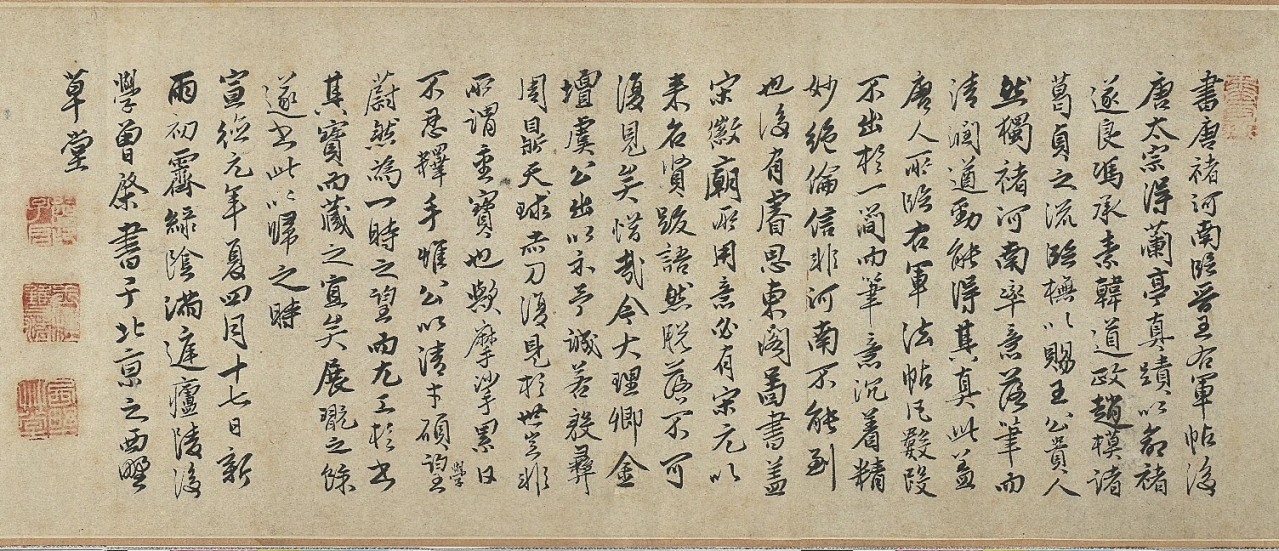 書唐褚河南臨晉王右軍帖後
唐太宗得蘭亭真蹟以命褚
遂良馮承素韓道政趙模諸
葛貞之流臨橅以賜王公貴人
然獨褚河南率意落筆而
清潤遒勁能得其真此蓋
唐人所臨右軍法帖凡數段
不出於一簡而筆意沉着精
妙絕倫信非河南不能到
也後有睿思東閣畵書蓋
宋徽廟所用意必有宋元以
来名賢跋語然脫落不可
復見矣惜哉今大理卿金
壇虞公出以示予誠若殷彝
周鼎天球赤刀復見於世豈非
所謂重寶也歟摩挲累日
不忍釋手惟公以清才碩學望
蔚然為一時之望而尤工於書
其寶而藏之宜矣展翫之餘
遂書此以歸之時
宣德元年夏四月十七日新
雨初霽緑陰滿庭廬陵後
學曾棨書于北京之西墅
草堂